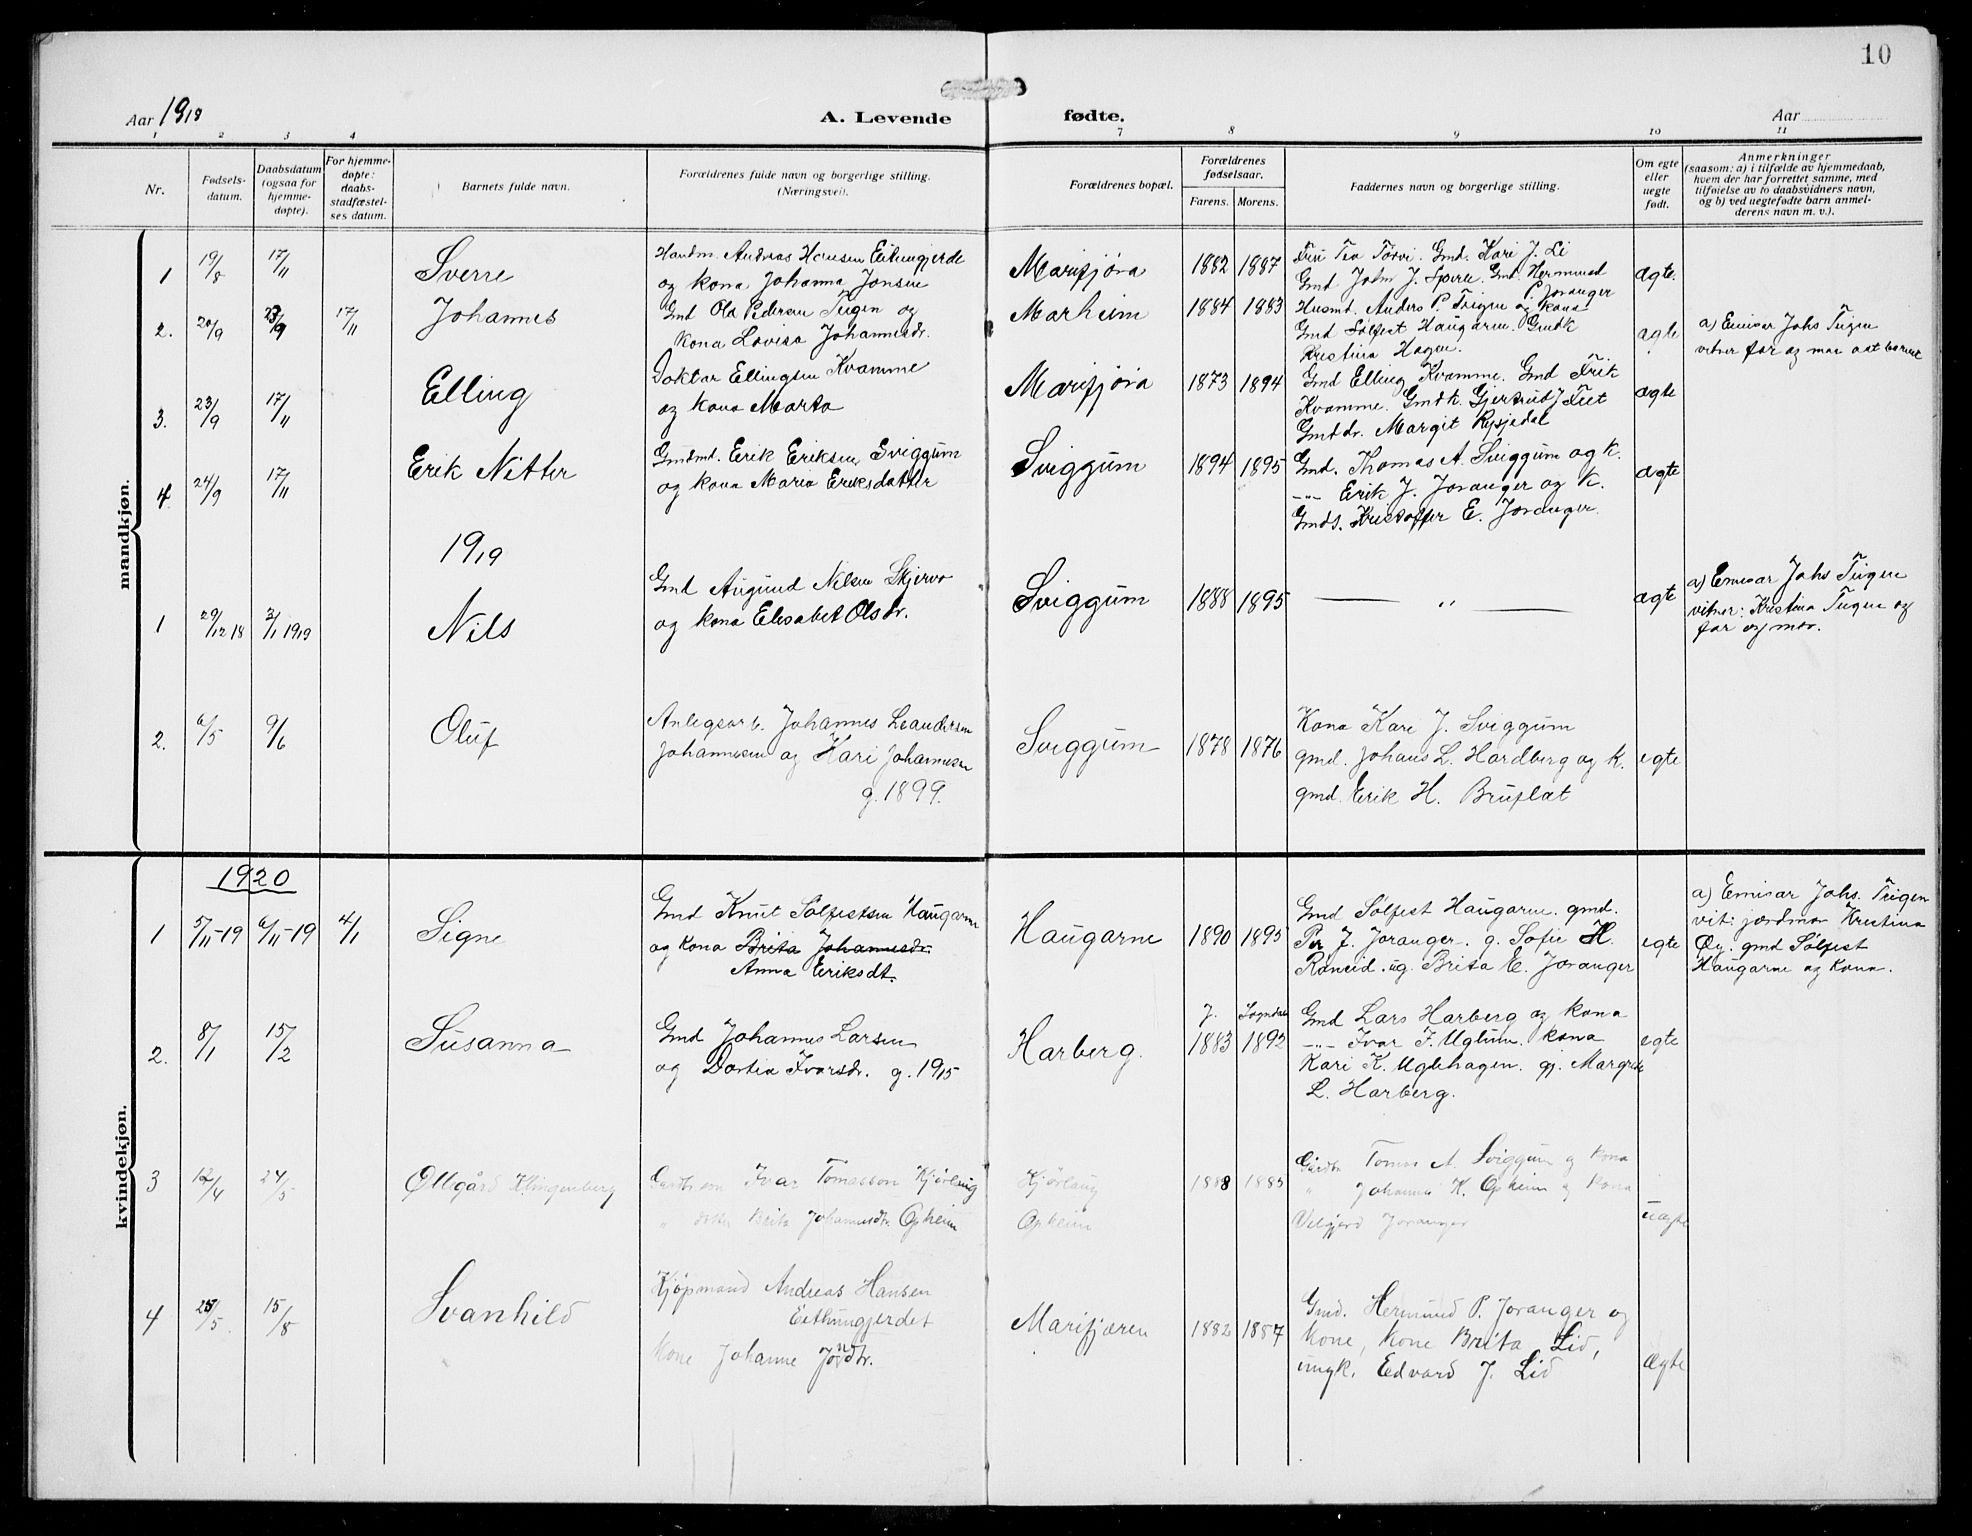 10
Aar 1918
A. Levende
fødte.
Aar
1 2 3 4 7 8 9 10 11
Nr.
Fødsels-
datum.
Daabsdatum
(ogsaa for
hjemme-
døpte).
For hjemme-
døpte:
daabs-
stadfæstel-
ses datum.
Barnets fulde navn.
Forældrenes fulde navn og borgerlige stilling.
(Næringsvei).
Forældrenes bopæl.
Forældrenes
fødselsaar.
Farens. Morens.
Faddernes navn og borgerlige stilling.
Om egte
eller
uegte
født.
Anmerkninger
(saasom: a) i tilfælde av hjemmedaab,
hvem der har forrettet samme, med
tilføielse av to daabsvidners navn,
og b) ved uegtefødte barn anmel-
derens navn m. v.).
mandkjøn.
1 19/8 17/11 Sverre
Handm. Andreas Hansen Eithungjerde
og kona Johanna Jonsen
Marifjøra 1882 1887
Kari J. Li
Gmd John J. Gmd Hermund
P. Joranger
ægte.
2. 20/9 23/9 17/11 Johannes
Gmd Ola Pedersen Teigen og
kona Lovisa Johannesdr.
Marheim 1884 1883
Husmd. Anders P. Teigen og kona
Gmd Sølfest Haugarne. Gmdk
Kristina Hagen.
ægte
a) Emisær Johs Teigen
vitner far og mor aat barnet
3. 23/9 17/11 Elling
Doktar Ellingsen Kvamme
og kona Marta
Marifjøra 1873 1894
Gmd Elling Kvamme. Gmd Erik
Kvamme. Gmdk. Gjertrud J Feet
Gmddr. Margit Rysjedal
ægte
4 24/9 17/11 Erik Nitter
Gmdmd. Erik Eriksen Sviggum
og kona Maria Eriksdatter
Sviggum 1894 1895
Gmd. Thomas A. Sviggum og k.
-"- Erik J. Joranger og k.
Gmds. Kristoffer E. Joranger.
ægte
1919
1 29/12 18 2/1 1919 Nils
Gmd Augund Nilsen Skjervo
og kona Elisabet Olsdr.
Sviggum 1888 1895
— " —
ægte
a) Emisar Johs Teigen
vitner: Kristina Teigen og
far og mor.
2. 6/5 9/6 Oluf
Anlegsarb. Johannes Leandersen
Johannesen og Kari Johannesen
g. 1899.
Sviggum 1878 1876
Kona Kari J. Sviggum
gmd. Johans L. Hardberg og k.
gmd. Erik H. Bruflat
egte
kvindekjøn.
1920
1 5/11-19 6/11-19 4/1 Signe
Gmd Knut Sølfestsen Haugarne
og kona Brita Johannesdr.
Anna Eriksdt.
Haugarne 1890 1895
Gmd Sølfest Haugarne. gmd.
Per J. Joranger. g. Sofie H.
Roneid. ug. Brita E. Joranger
egte
a) Emisar Johs. Teigen
vit: jordmor Kristina
Øy. gmd Sølfest
Haugarne og kona.
2. 8/1 15/2 Susanna
Gmd Johannes Larsen
og Dortea Ivarsdr. g. 1915
Harberg.
J. Sogndal
1883 1892
Gmd Lars Harberg og kona
-"- Ivar F. Uglum. kona
Kari K. Uglehagen. gj. Margrete
L. Harberg.
egte
3 12/4 24/5 Øllegård Klingenberg
Gardbr. søn Ivar Tomasson Kjørlaug
" dotter Brita Johannesdtr. Opheim
Kjørlaug
Opheim
1888 1885
Gardbr Tomas A. Sviggum og kona
" Johannes K. Opheim og kona
Joranger
uægte
4 25/5. 15/8 Svanhild
Kjøpmand Andreas Hansen
Eithungjerdet
kone Johanne Jonsdtr.
Marifjæren 1882 1887
Gmd. Hermund P. Joranger og
kone, kone Brita Lid,
ungk. Edvard J. Lid
Ægte